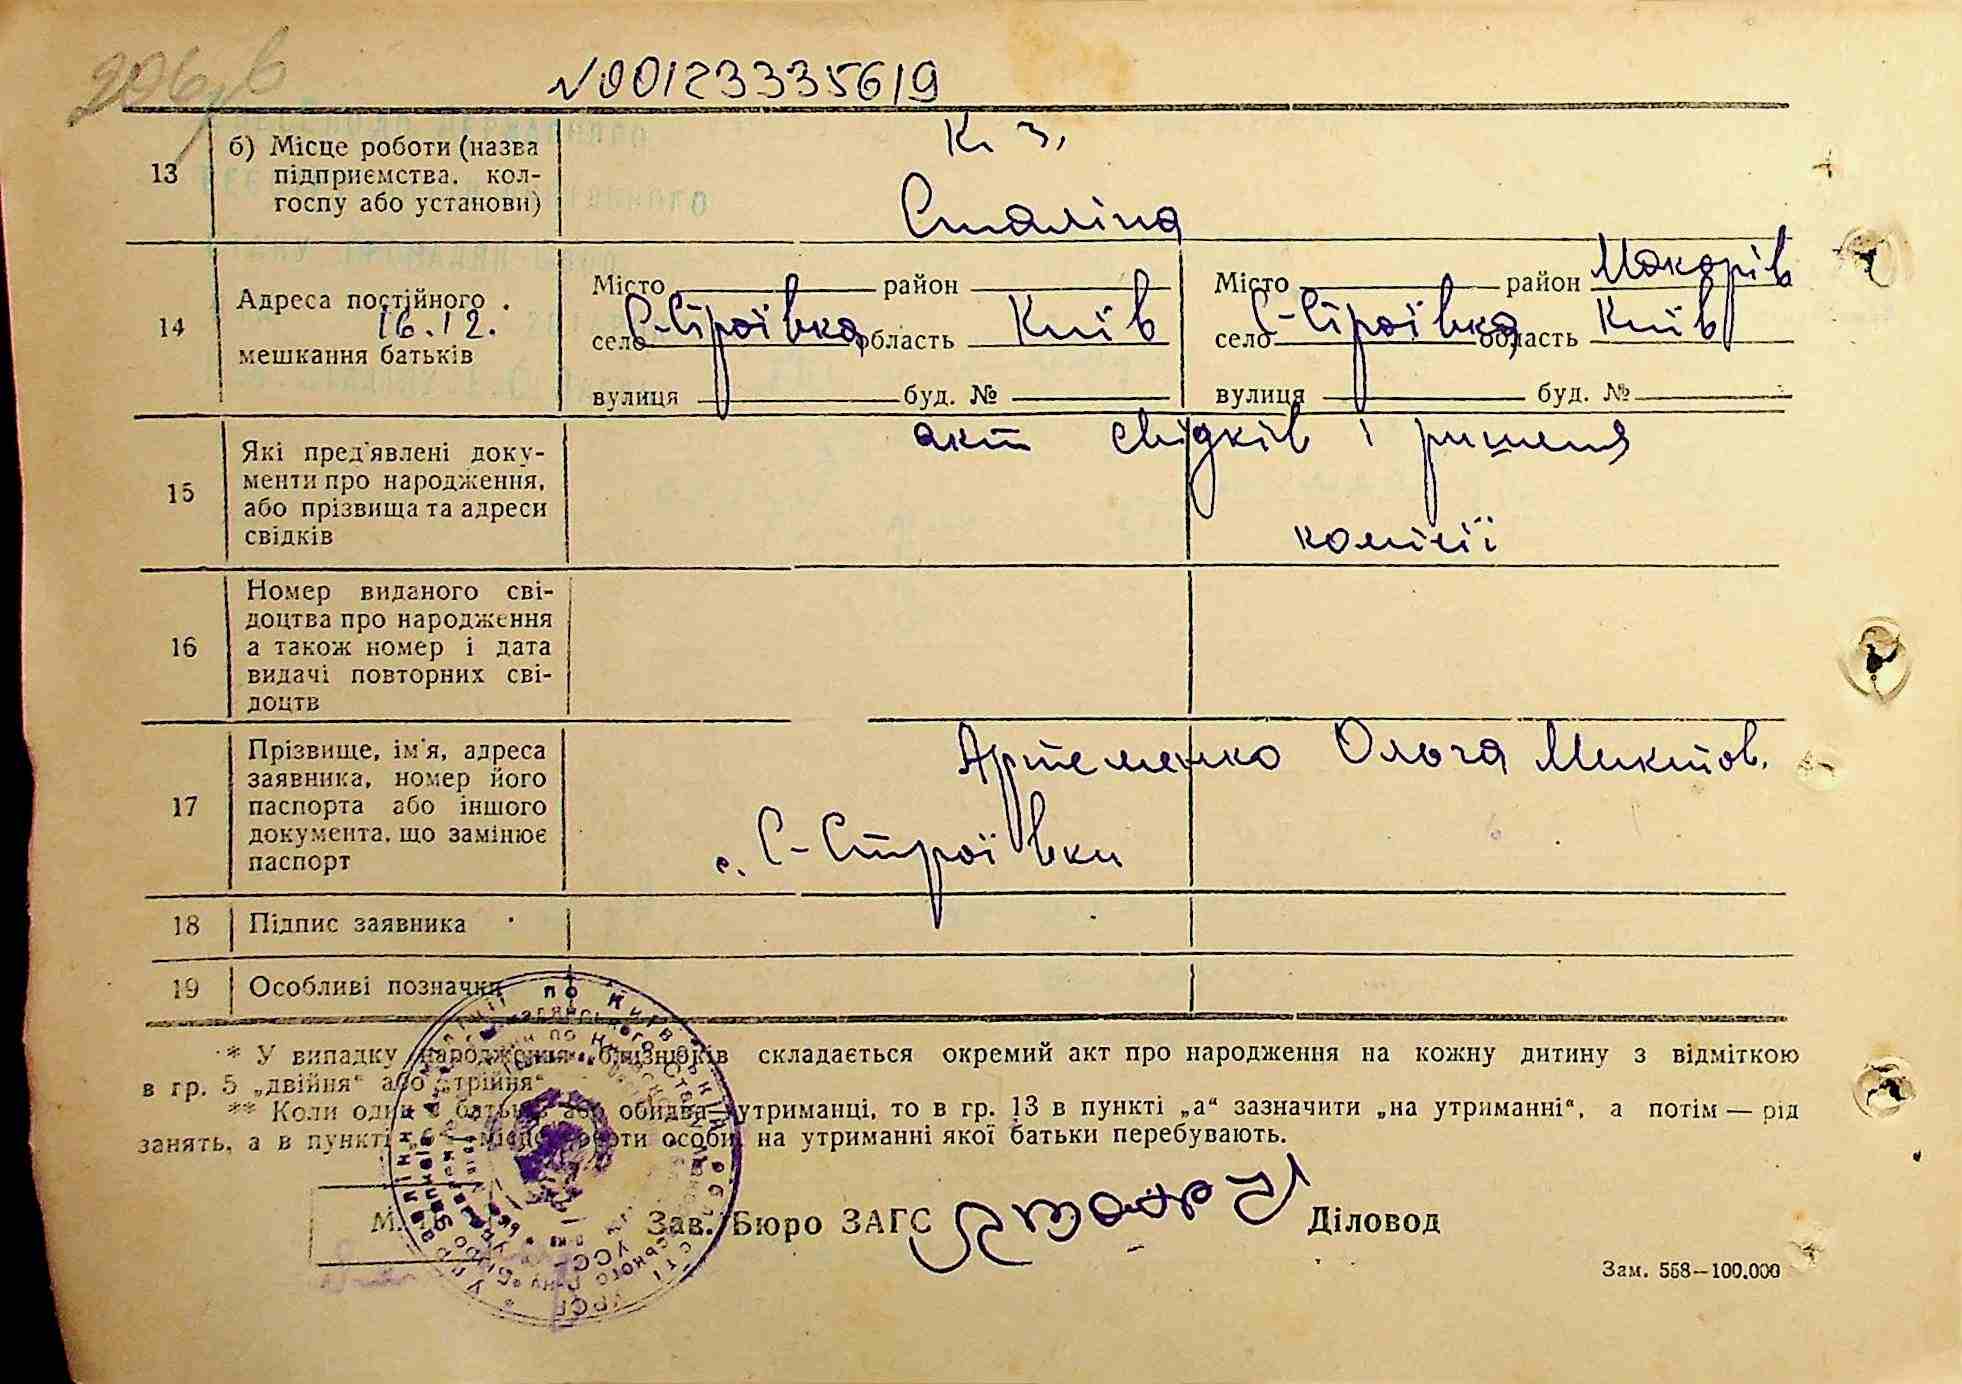 206,6
N00123335619
13
б) Місце роботи (назва
підприємства, кол-
госпу або установи)
К. з.
Сталіна
14
Адреса постійного
16.12.
мешкання батьків
Місто район
село С-Строївка, область Київ
вулиця буд. №
Місто район Макарів
село С-Строївка, область Київ
вулиця буд. №
15
Які пред'явлені доку-
менти про народження,
або прізвища та адреси
свідків
акт свідків і ришеня
комісії
16
Номер виданого сві-
доцтва про народження
а також номер і дата
видачі повторних сві-
доцтв
17
Прізвище, ім'я, адреса
заявника, номер його
паспорта або іншого
документа, що замінює
паспорт
Артеменко Ольга Микитов.
с. С-Строївки
18
Підпис заявника
19
Особливі позначки
* У випадку народження близнюків складається окремий акт про народження на кожну дитину з відміткою
в гр. 5 „двійня“ або „трійня“
** Коли один з батьків або обидва утриманці, то в гр. 13 в пункті „а“ зазначити „на утриманні“, а потім — рід
занять, а в пункті „б“ місце роботи особи, на утриманні якої батьки перебувають.
М.
Зав. Бюро ЗАГС
Діловод
Зам. 558—100.000